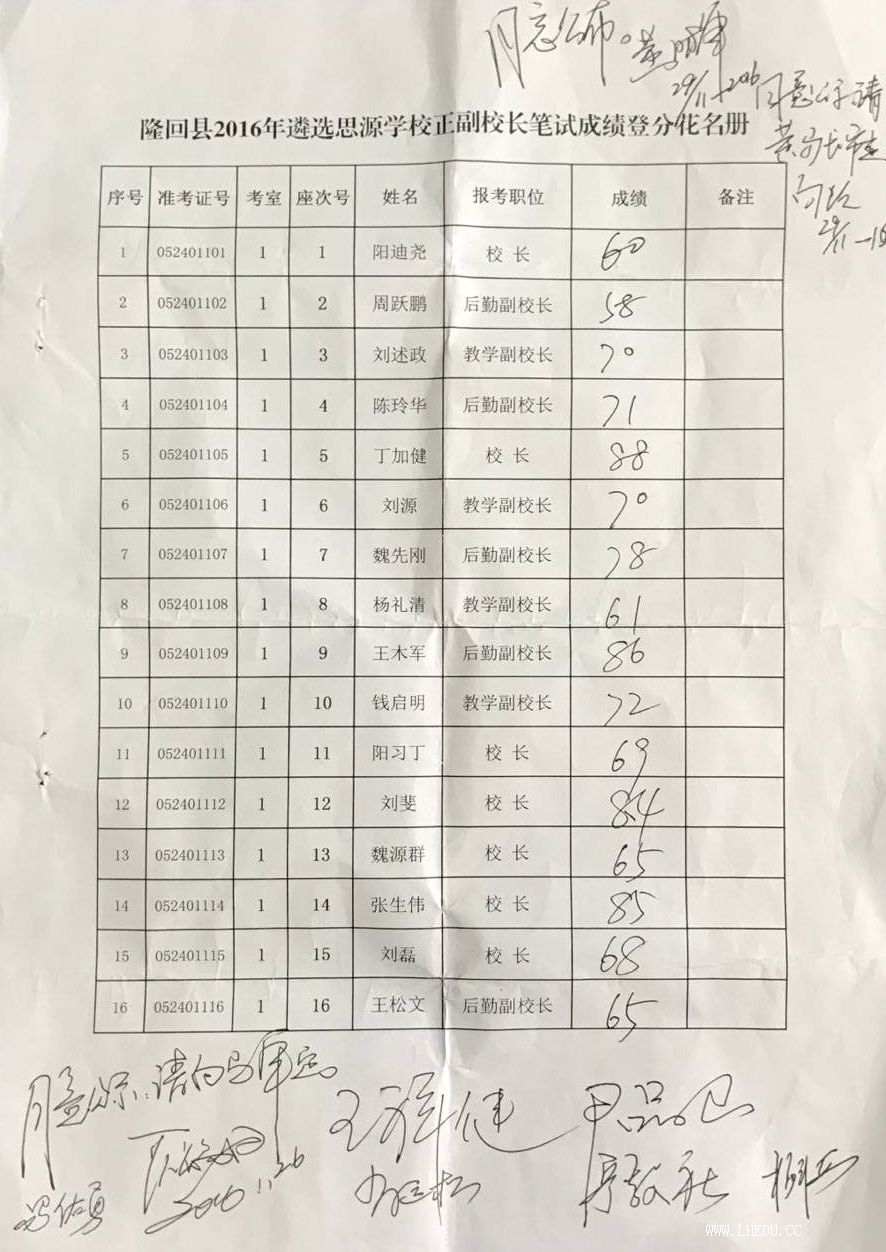 同意公布。
29/11-2016
隆回县2016年遴选思源学校正副校长笔试成绩登分花名册
29/11-16
序号 准考证号 考室 座次号 姓名 报考职位 成绩 备注
1 052401101 1 1 阳迪尧 校 长 60
2 052401102 1 2 周跃鹏 后勤副校长 58
3 052401103 1 3 刘述政 教学副校长 70
4 052401104 1 4 陈玲华 后勤副校长 71
5 052401105 1 5 丁加健 校 长 88
6 052401106 1 6 刘源 教学副校长 70
7 052401107 1 7 魏先刚 后勤副校长 78
8 052401108 1 8 杨礼清 教学副校长 61
9 052401109 1 9 王木军 后勤副校长 86
10 052401110 1 10 钱启明 教学副校长 72
11 052401111 1 11 阳习丁 校 长 69
12 052401112 1 12 刘斐 校 长 84
13 052401113 1 13 魏源群 校 长 65
14 052401114 1 14 张生伟 校 长 85
15 052401115 1 15 刘磊 校 长 68
16 052401116 1 16 王松文 后勤副校长 65
WWW.LHEDU.CC